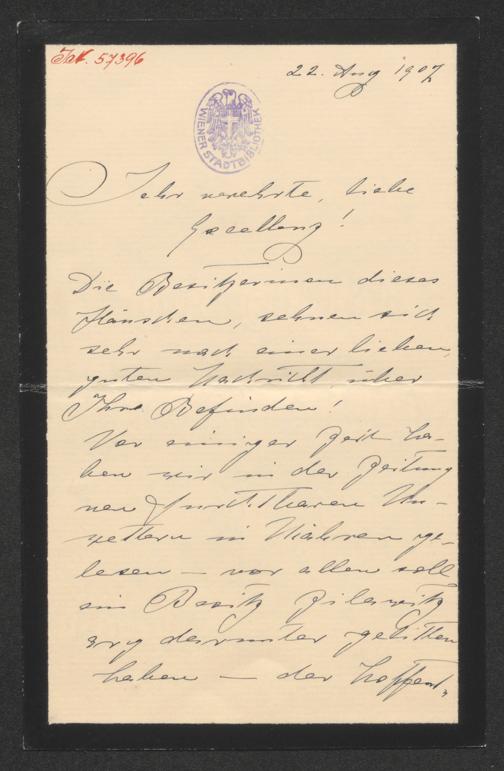 Jak. 57396
22. Aug 1907
WIENER STADTBIBLIOTHEK
Sehr verehrte, liebe
Excellenz!
Die Besitzerinen dieses
Häuschen, sehnen sich
sehr nach einer lieben,
guten Nachricht, über
Ihre Befinden!
Vor einiger Zeit ha-
ben wir in der Zeitung
von furchtbaren Un-
wettern in Mähren ge-
lesen – vor allen soll
ein Besitz
arg darunter gelitten
haben – der hoffent-